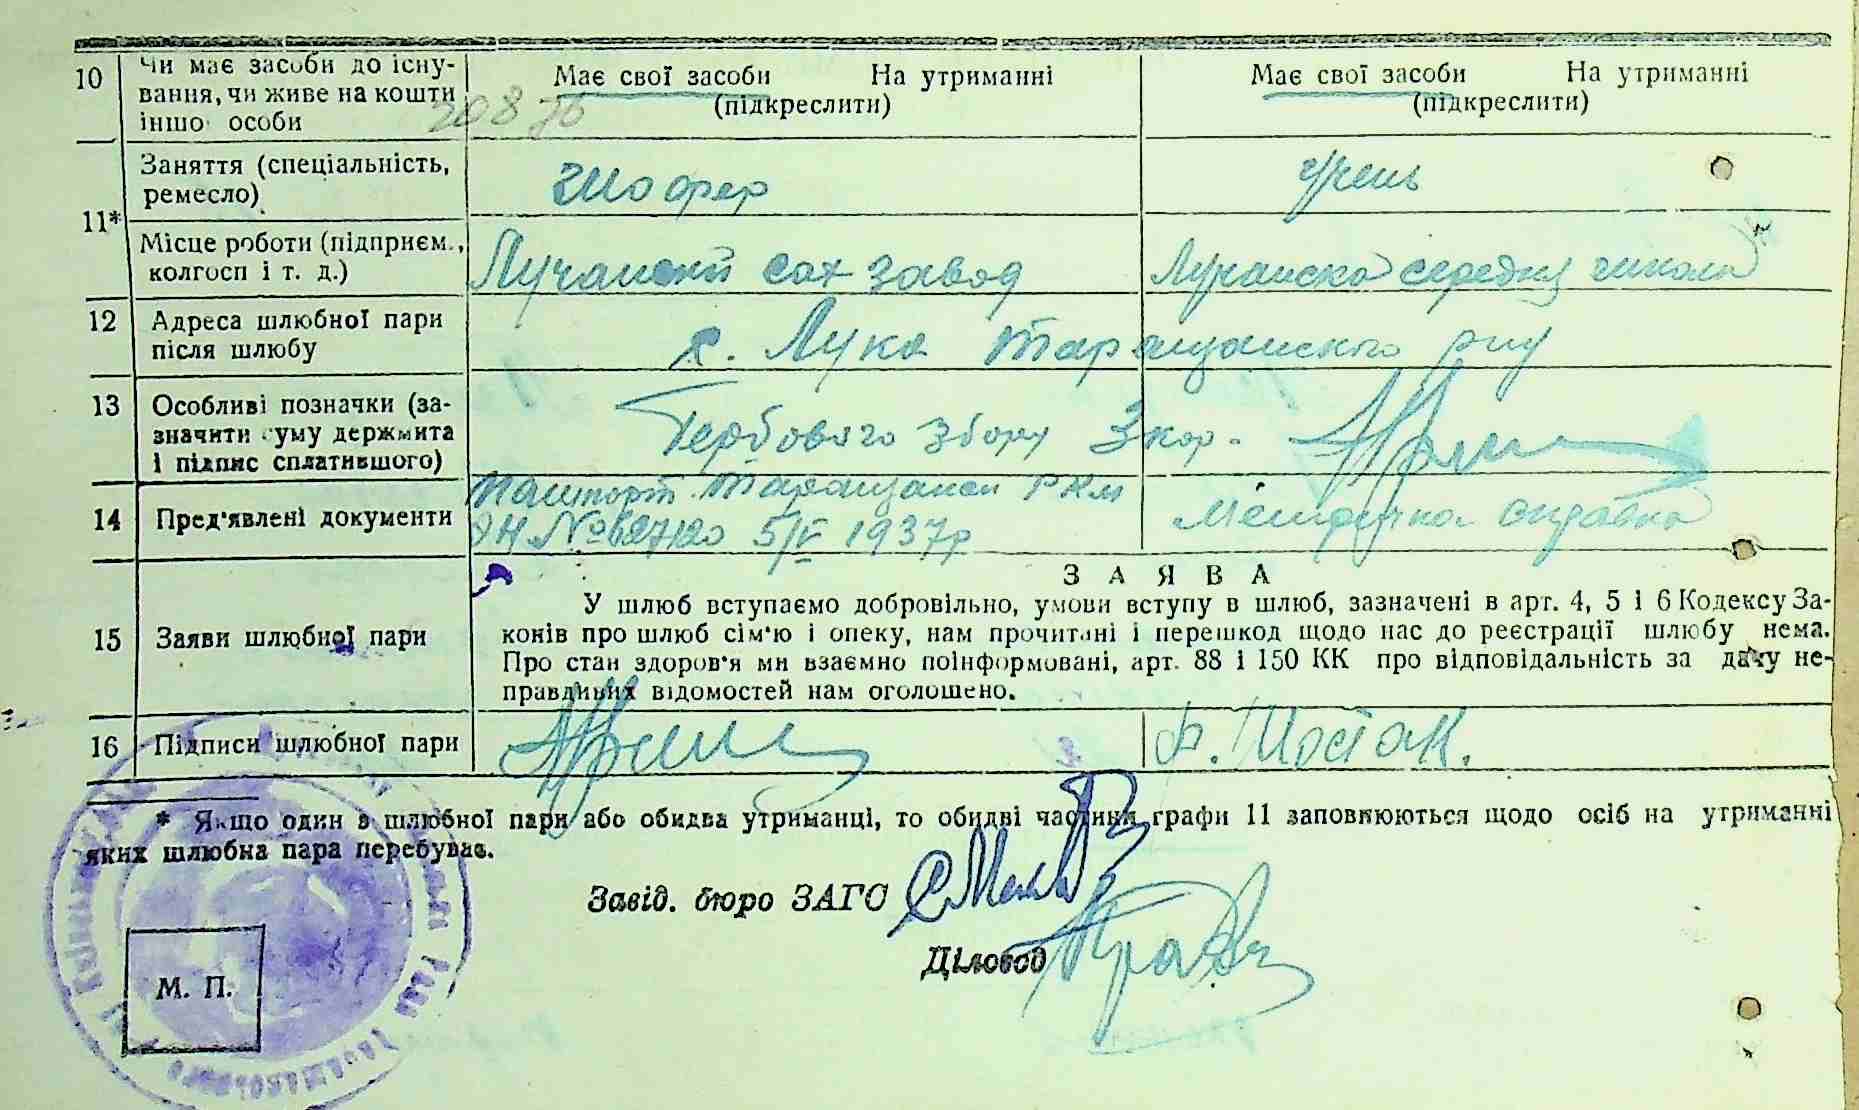 10 Чи має засоби до існу-
вання, чи живе на кошти
іншо особи
Має свої засоби На утриманні
(підкреслити)
Має свої засоби На утриманні
(підкреслити)
20876
11* Заняття (спеціальність,
ремесло)
шофер
учень
Місце роботи (підприєм.,
колгосп і т. д.)
Лучанский сах завод
Лучанска середня школа
12 Адреса шлюбної пари
після шлюбу
с. Лука Таращанского р-ну
13 Особливі позначки (за-
значити суму держмита
і підпис сплатившого)
Гербового збору 3 кор.
14 Пред'явлені документи
Пашпорт Таращанск РКМ
УН № 627120 5/V 1937р
Метрична справка
15 Заяви шлюбної пари
ЗАЯВА
У шлюб вступаємо добровільно, умови вступу в шлюб, зазначені в арт. 4, 5 і 6 Кодексу За-
конів про шлюб сім'ю і опеку, нам прочитані і перешкод щодо нас до реєстрації шлюбу нема.
Про стан здоров'я ми взаємно поінформовані, арт. 88 і 150 КК про відповідальність за дачу не-
правдивих відомостей нам оголошено.
16 Підписи шлюбної пари
Ф. Шостак.
* Якщо один з шлюбної пари або обидва утриманці, то обидві частини графи 11 заповнюються щодо осіб на утриманні
яких шлюбна пара перебуває.
Завід. бюро ЗАГС
Діловод
М. П.